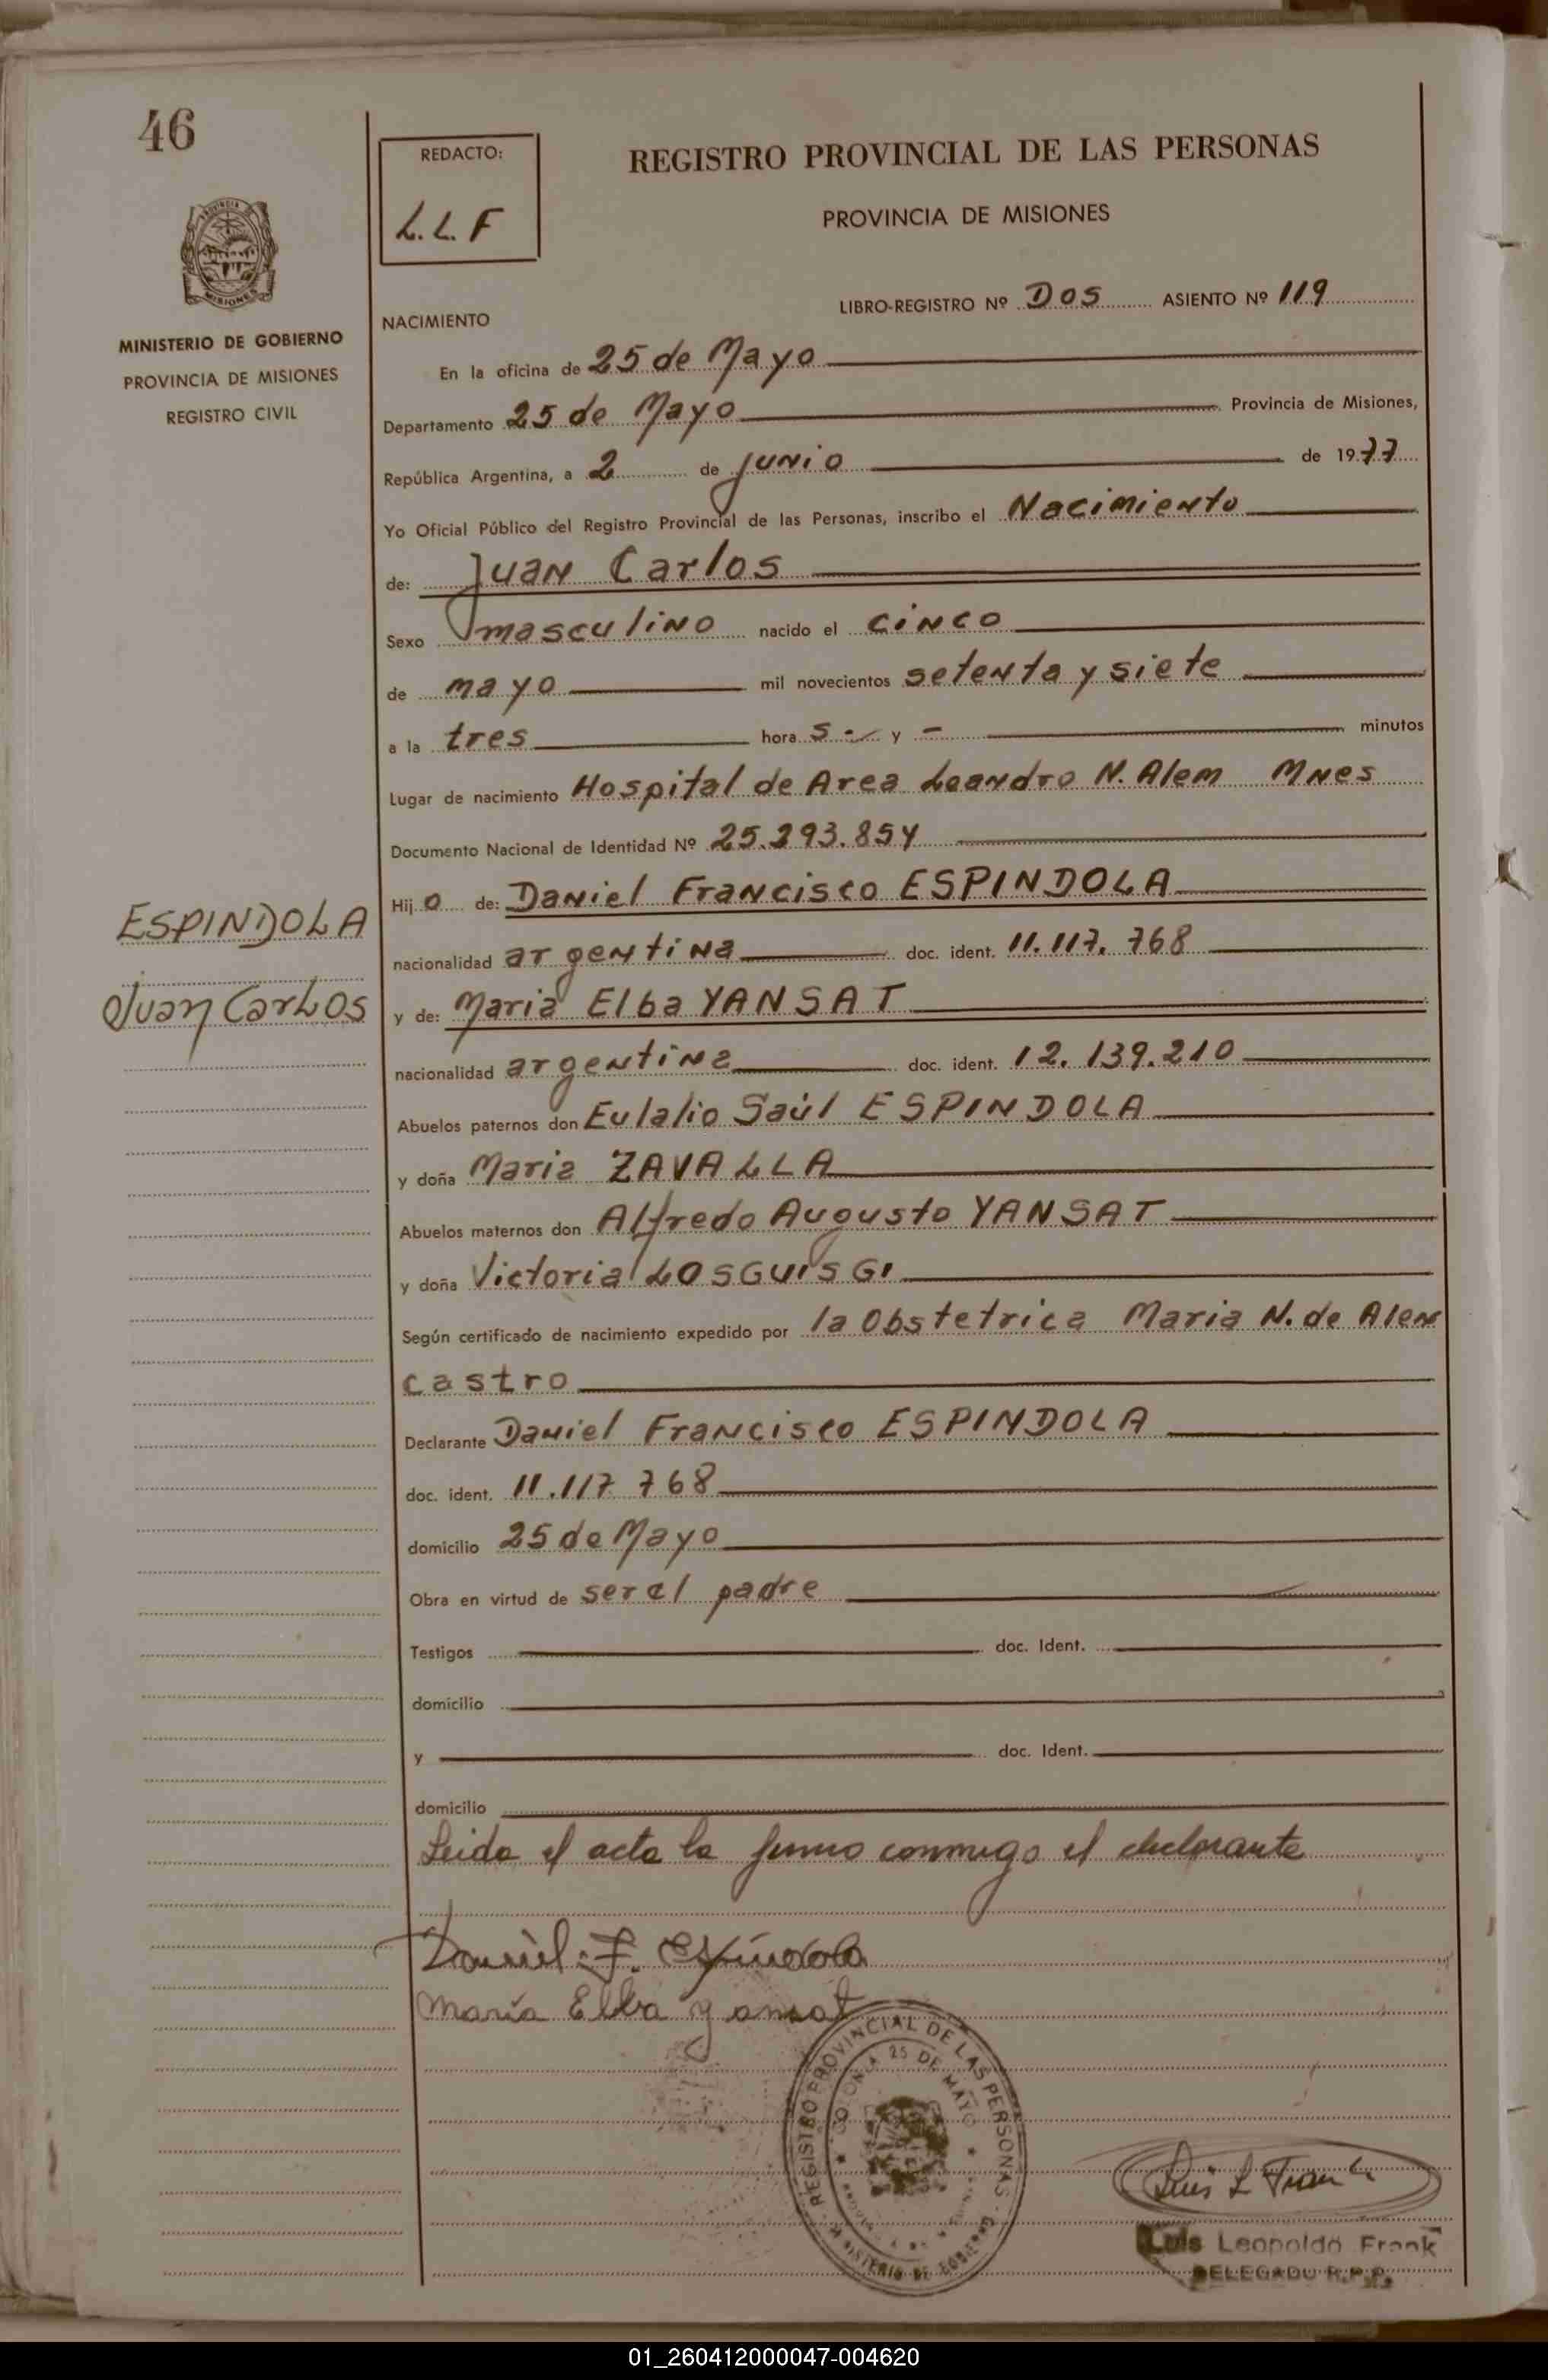 46
REDACTO:
L.L.F
REGISTRO PROVINCIAL DE LAS PERSONAS
PROVINCIA DE MISIONES
MISIONES
MINISTERIO DE GOBIERNO
PROVINCIA DE MISIONES
REGISTRO CIVIL
LIBRO-REGISTRO Nº Dos ASIENTO Nº 119
NACIMIENTO
En la oficina de 25 de Mayo
Departamento 25 de Mayo Provincia de Misiones,
República Argentina, a 2 de junio de 1977
Yo Oficial Público del Registro Provincial de las Personas, inscribo el Nacimiento
de: Juan Carlos
Sexo masculino nacido el cinco
de mayo mil novecientos setenta y siete
a la tres hora s.- y - minutos
Lugar de nacimiento Hospital de Area Leandro N. Alem Mnes
Documento Nacional de Identidad Nº 25.293.854
Hij o de: Daniel Francisco ESPINDOLA
nacionalidad argentina doc. ident. 11.117.768
y de: Maria Elba YANSAT
nacionalidad argentina doc. ident. 12.139.210
Abuelos paternos don Eulalio Saúl ESPINDOLA
y doña Maria ZAVALLA
Abuelos maternos don Alfredo Augusto YANSAT
y doña Victoria LOSGUISGI
Según certificado de nacimiento expedido por la Obstetrica Maria N. de Alen
castro
Declarante Daniel Francisco ESPINDOLA
doc. ident. 11.117.768
domicilio 25 de Mayo
Obra en virtud de ser el padre
Testigos doc. Ident.
domicilio
y doc. Ident.
domicilio
ESPINDOLA
Juan CarLos
Leida el acta la firma conmigo el declarante
Daniel F. Espindola
María Elba Yansat
REGISTRO PROVINCIAL DE LAS PERSONAS
COLONIA 25 DE MAYO
MINISTERIO DE GOBIERNO
Luis L Frank
Luis Leopoldo Frank
DELEGADO R.P.P.
01_260412000047-004620